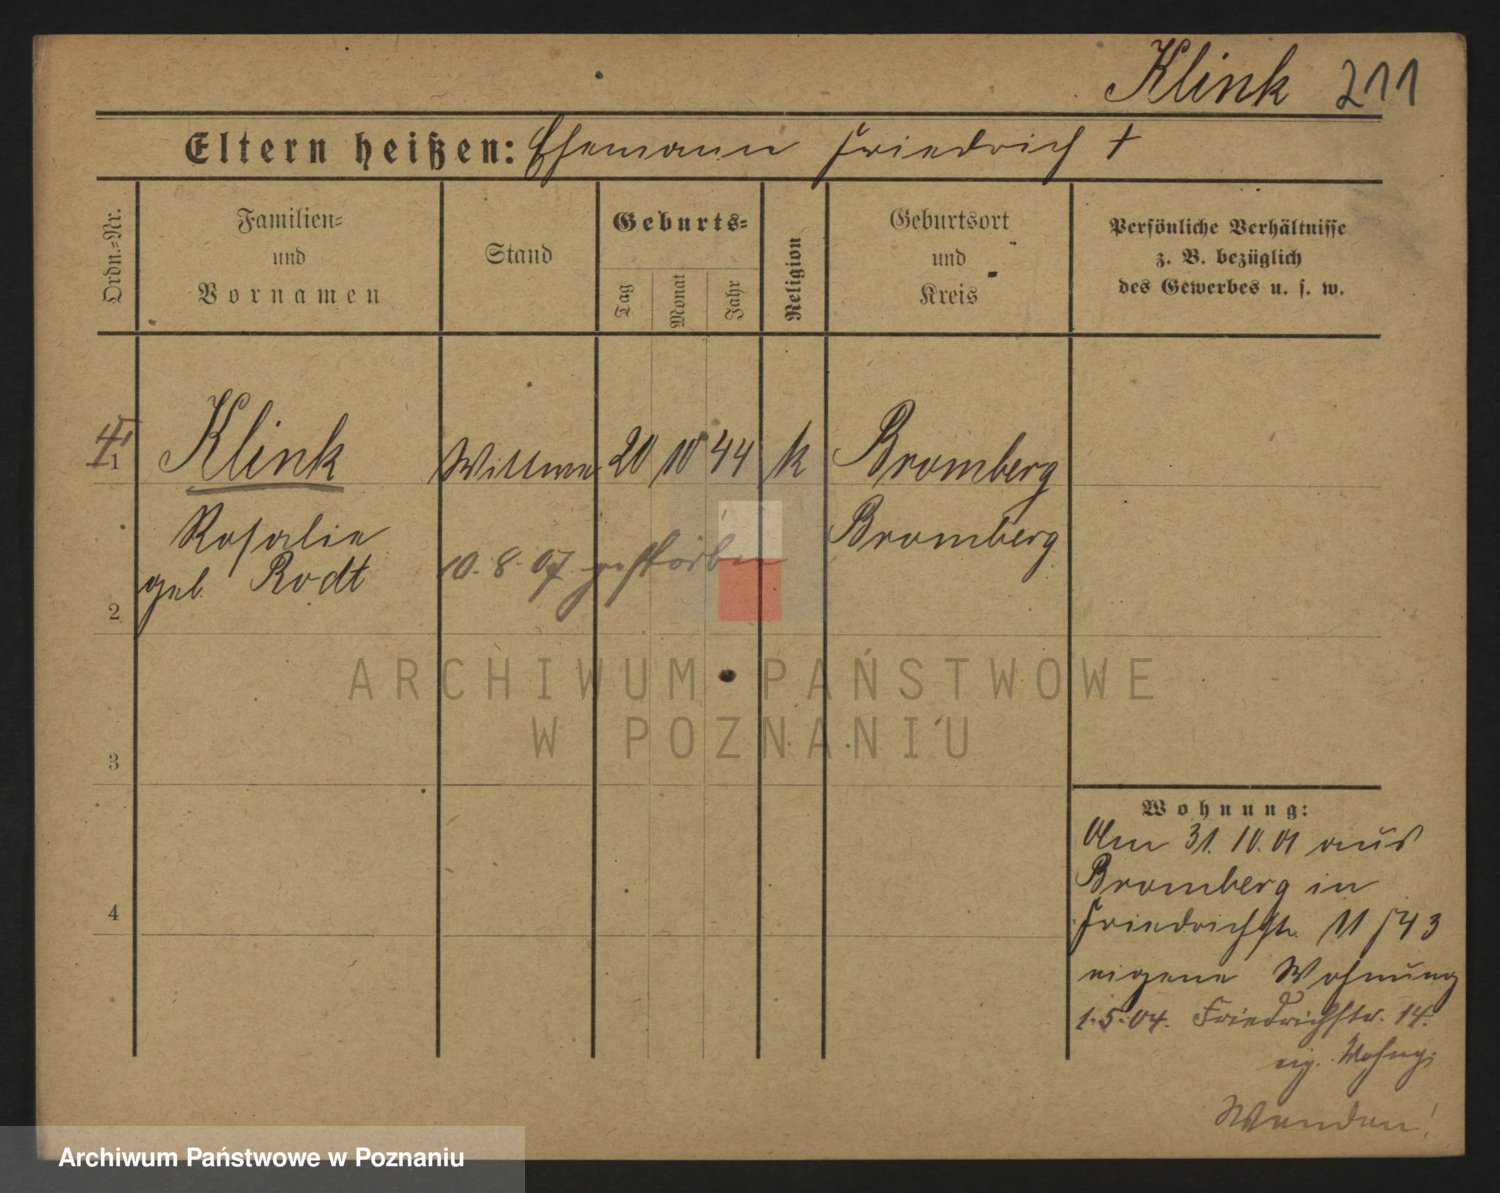 Klink 211
Eltern heißen: Ehemann Friedrich †
Ordn.-Nr.
Familien-
und
Vornamen
Stand
Geburts-
Tag
Monat
Jahr
Religion
Geburtsort
und
Kreis
Persönliche Verhältnisse
z. B. bezüglich
des Gewerbes u. s. w.
1 Klink Wittwe 20 10 44 k Bromberg
Rosalie Bromberg
geb. Rodt 10.8.07 gestorben
2
ARCHIWUM PAŃSTWOWE
W POZNANIU
3
4
Wohnung:
Am 31.10.01 aus
Bromberg in
Friedrichstr. 11 / 43
eigene Wohnung
1.5.04. Friedrichstr. 14.
eig. Wohng.
Wenden!
Archiwum Państwowe w Poznaniu